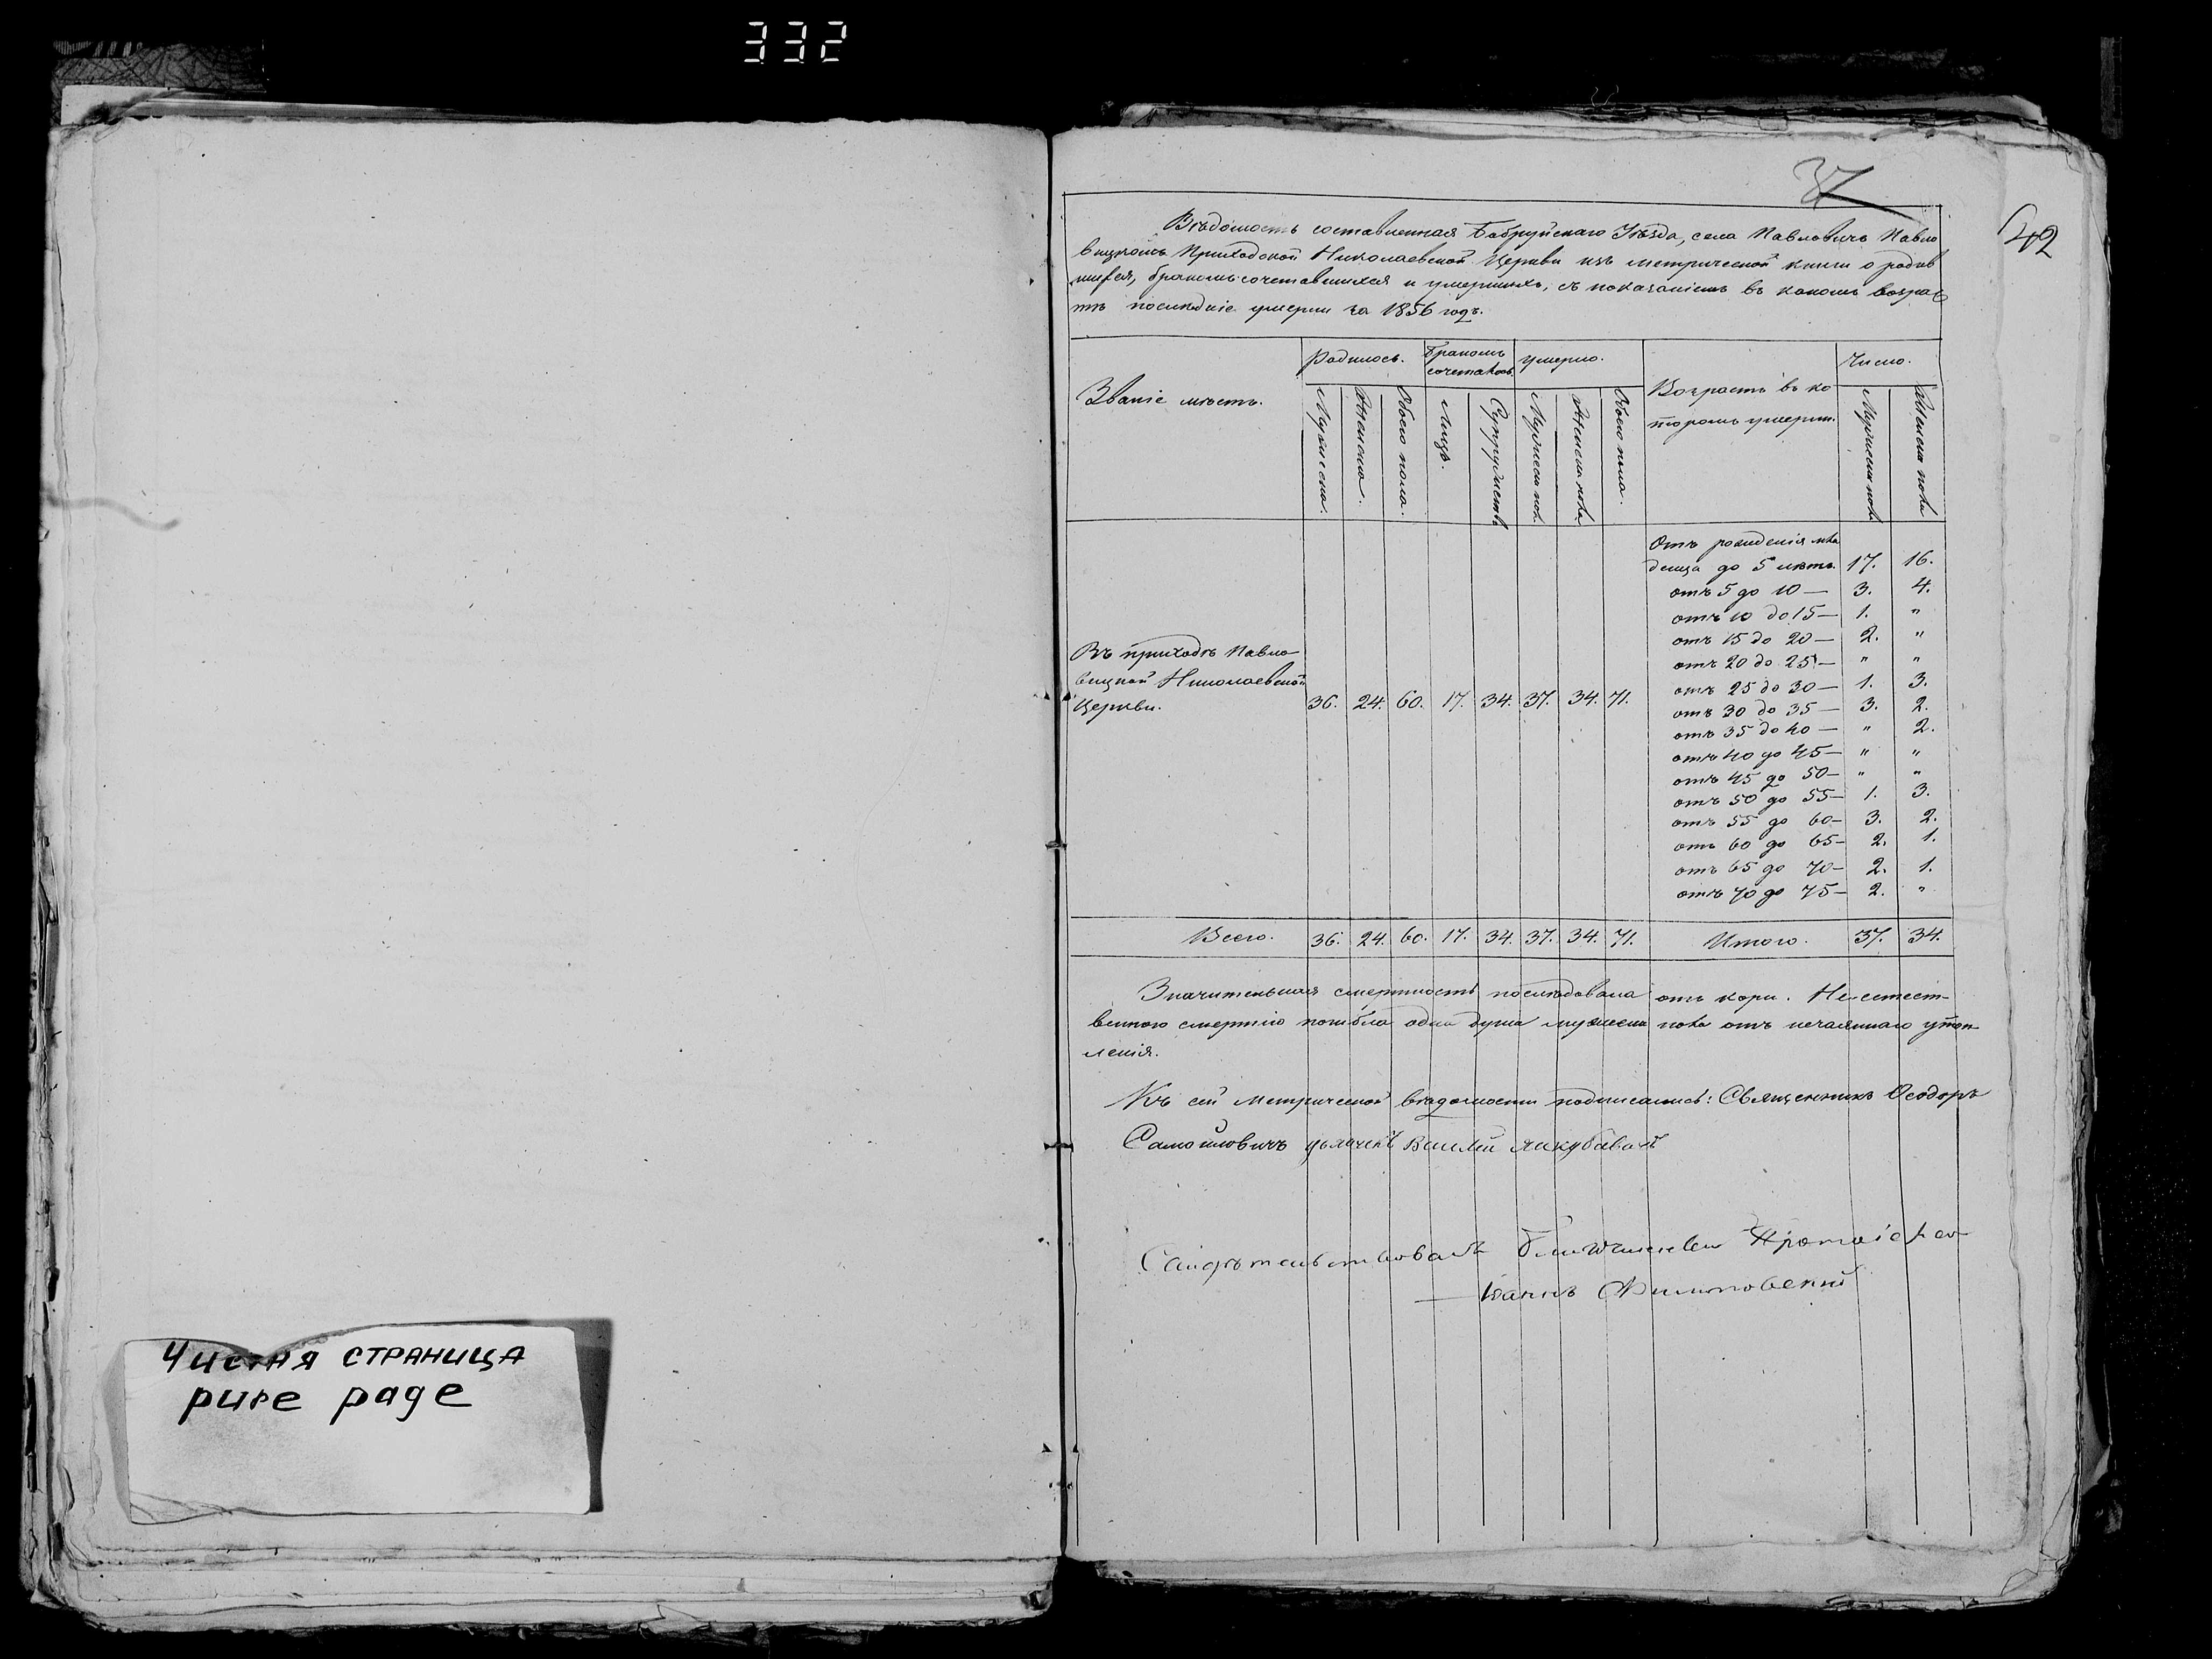 332
37
42
Вѣдомость составленная Бобруйскаго Уѣзда, села Павловичъ Павло
вицкой Приходской Николаевской Церкви изъ метрической книги о родив
шихся, бракомъ сочетавшихся и умершихъ, съ показаніемъ въ какомъ возрас
тѣ послѣдніе умерли за 1856 годъ.
Званіе мѣстъ.
Родилось.
Бракомъ
сочеталось
умерло.
Возрастъ въ ко
торомъ умерли.
Число.
Мужеска.
Женска.
Обоего пола.
Лицъ.
Супружествъ
Мужеска пол.
Женска пола
Обоего пола.
Мужеска пола
Женска пола
Отъ рожденія мла
денца до 5 лѣтъ. 17. 16.
отъ 5 до 10 — 3. 4.
отъ 10 до 15 — 1. "
отъ 15 до 20 — 2. "
отъ 20 до 25 — " "
отъ 25 до 30 — 1. 3.
отъ 30 до 35 — 3. 2.
отъ 35 до 40 — " 2.
отъ 40 до 45 — " "
отъ 45 до 50 — " "
отъ 50 до 55 — 1. 3.
отъ 55 до 60 — 3. 2.
отъ 60 до 65 — 2. 1.
отъ 65 до 70 — 2. 1.
отъ 70 до 75 — 2. "
Въ приходѣ Павло
вицкой Николаевской
Церкви. 36. 24. 60. 17. 34. 37. 34. 71.
Всего. 36. 24. 60. 17. 34. 37. 34. 71. Итого. 37. 34.
Значительная смертность послѣдовала отъ кори. Неестест-
венною смертію погибла одна душа мужеска пола отъ нечаяннаго утоп-
ленія.
Къ сей метрической вѣдомости подписались: Священникъ Ѳеодоръ
Самойловичъ дьячекъ
Свидѣтельствовалъ Благочинный Протоіерей
Іоаннъ
Чистая страница
pure page